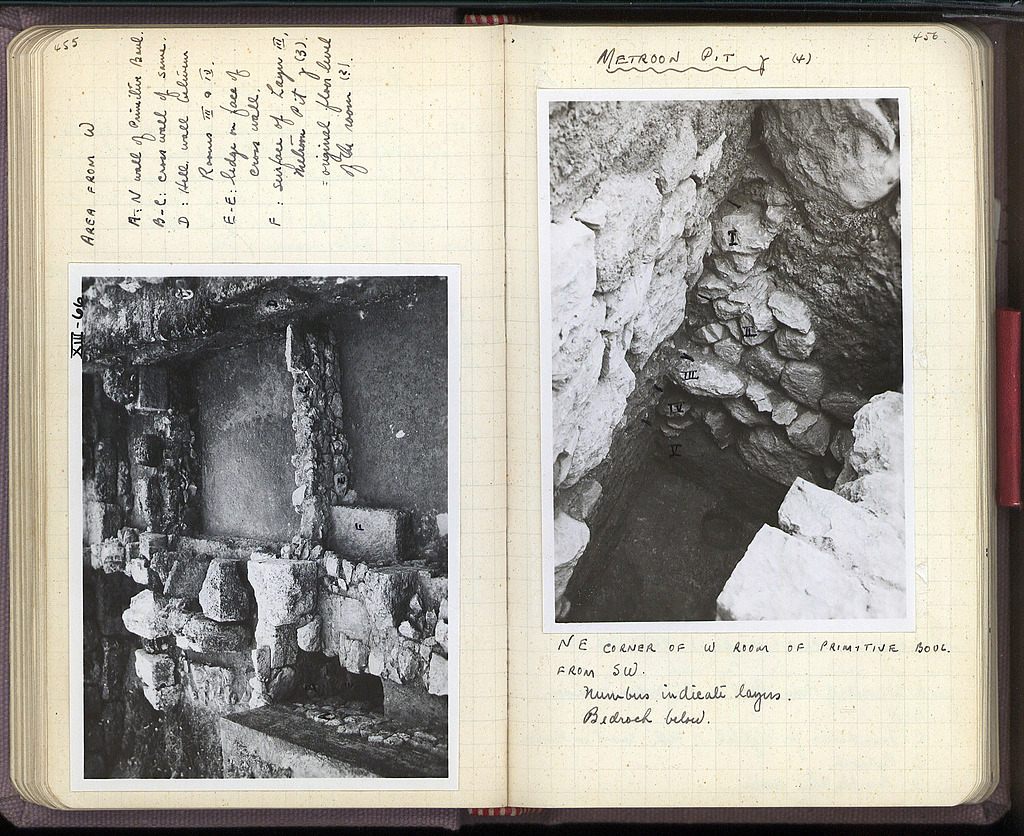 455
AREA FROM W
A: N wall of Primitive Boul.
B-C: cross wall of same.
D: Hell. wall between
Rooms III & IV.
E-E: ledge on face of
cross wall.
F: surface of Layer III,
Metroon Pit γ (3).
= original floor level
of the room (?).
XIII-66
D
F
456
METROON PIT γ (4)
I
II
III
IV
V
NE CORNER OF W ROOM OF PRIMITIVE BOUL.
FROM SW.
Numbers indicate layers.
Bedrock below.